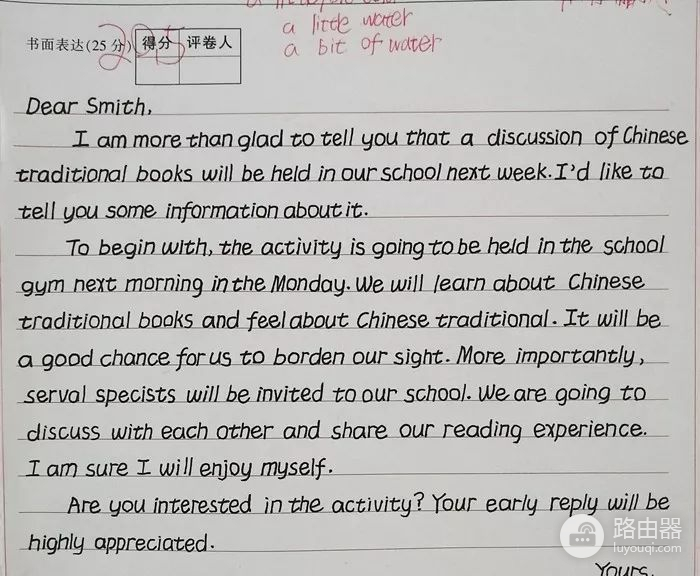 a little water
a bit of water
书面表达(25 分) 得分 评卷人
Dear Smith,
I am more than glad to tell you that a discussion of Chinese
traditional books will be held in our school next week. I'd like to
tell you some information about it.
To begin with, the activity is going to be held in the school
gym next morning in the Monday. We will learn about Chinese
traditional books and feel about Chinese traditional. It will be
a good chance for us to borden our sight. More importantly,
serval specists will be invited to our school. We are going to
discuss with each other and share our reading experience.
I am sure I will enjoy myself.
Are you interested in the activity? Your early reply will be
highly appreciated.
Yours,
路由器
luyouqi.com